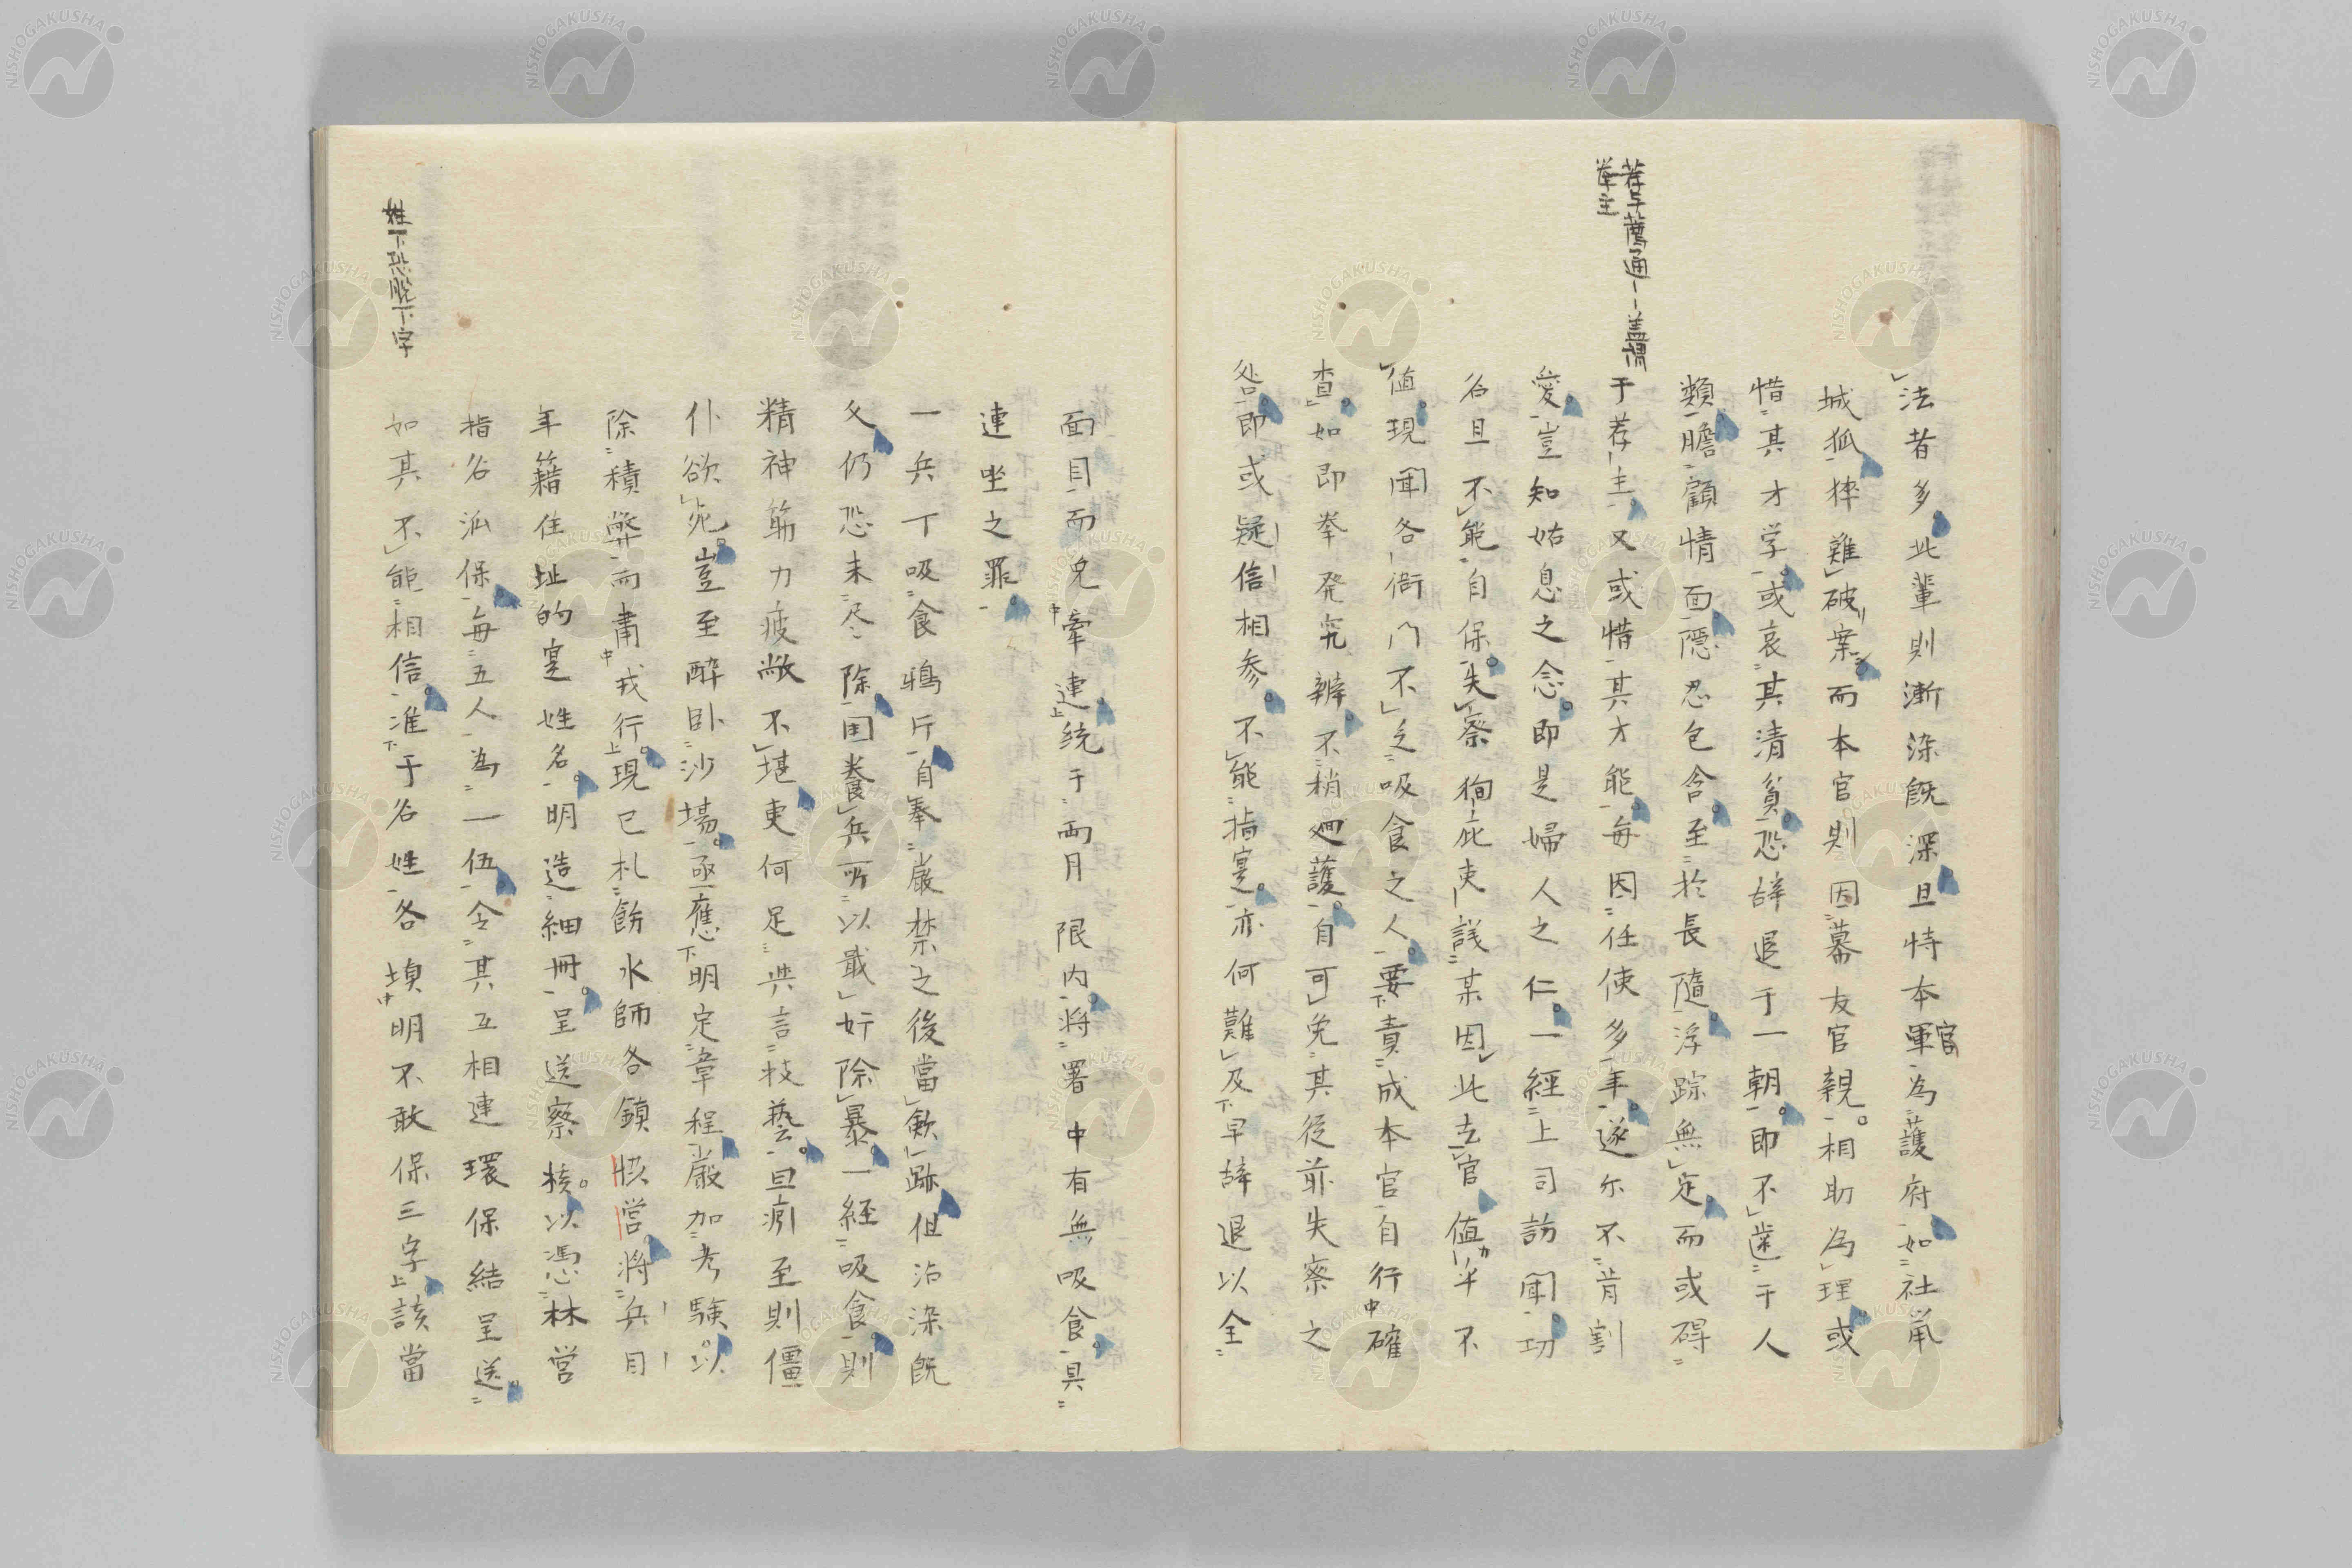 法者多此輩則漸染既深且恃本軍官為護府如社鼠
城狐猝難破案而本官則因幕友官親相助為理或
惜其才学或哀其清貧恐辞退于一朝即不歯于人
類瞻顧情面隠忍包含至於長随浮踪無定而或碍
荐与薦通荐主盖謂
挙主
于荐主又或惜其才能毎因任使多年遂尓不肯割
愛豈知姑息之念即是婦人之仁一経上司訪聞功
名且不能自保失察徇庇吏議某因此去官値カ半不
値現聞各衙門不乏吸食之人要責成本官自行確
査如即挙発究辦不稍廻護自可免其従前失察之
咎即或疑信相参不能指寔亦何難及早辞退以全
面目而免牽連統于両月限内将署中有無吸食具
連坐之罪
一兵丁吸食鴉片自奉厳禁之後當歛跡但沾染既
久仍恐未尽除国養兵所以戢奸除暴一経吸食則
精神筋力疲敝不堪吏何足共言技藝且癮至則僵
仆欲死豈至酔卧沙場亟應明定章程厳加考験以
除積弊而肅戎行現已札飭水師各鎮恊営将兵目
年籍住址的寔姓名明造細冊呈送察核以憑林営
指名泒保毎五人為一伍令其互相連環保結呈送
姓下恐脱下字
如其不能相信准于名姓各填明不敢保三字該當